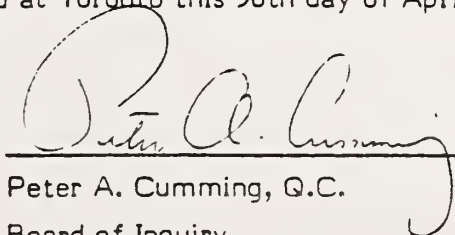 at Toronto this 30th day of Apri
Peter A. Cumming
Peter A. Cumming, Q.C.
Board of Inquiry